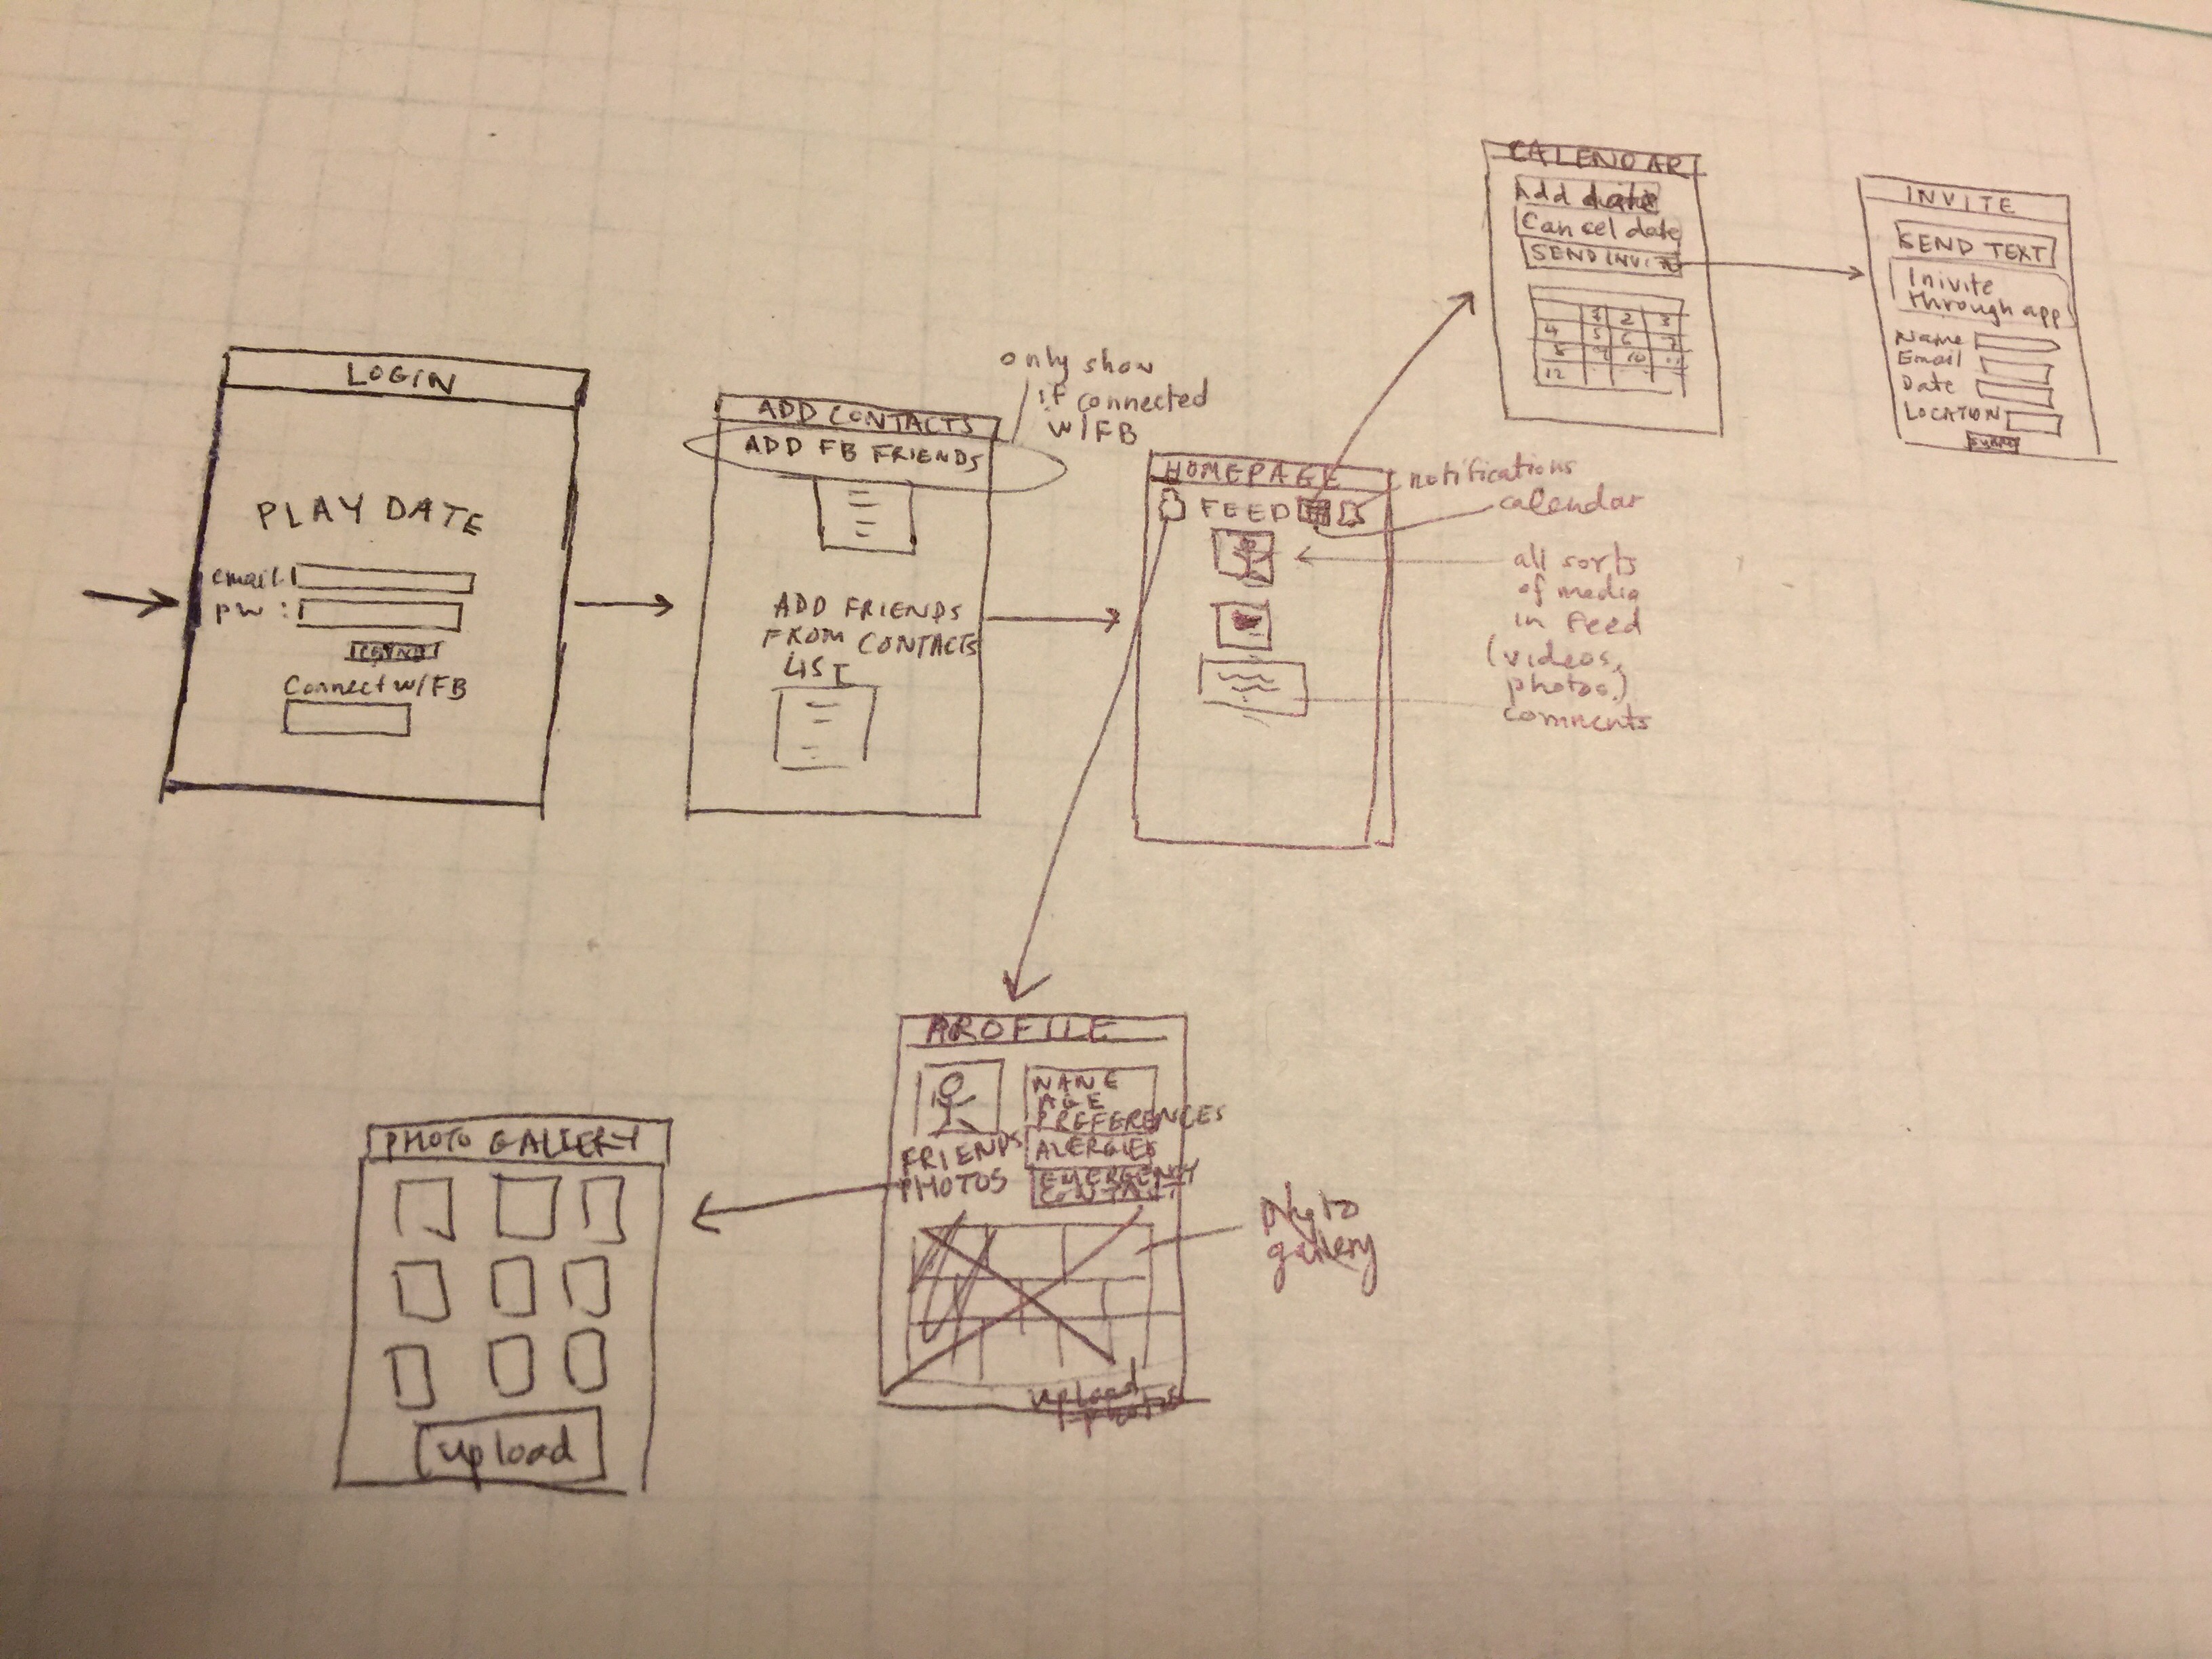 LOGIN
PLAY DATE
email:
pw :
Connect w/FB
ADD CONTACTS
ADD FB FRIENDS
only show
if connected
w/FB
ADD FRIENDS
FROM CONTACTS
LIST
HOMEPAGE
FEED
notifications
calendar
all sorts
of media
in feed
(videos,
photos,)
comments
CALENDAR
Add date
Cancel date
SEND INVITE
1 2 3
4 5 6 7
8 9 10 11
12
INVITE
SEND TEXT
Inivite
through app
Name
Email
Date
LOCATION
PROFILE
NAME
AGE
PREFERENCES
ALERGIES
EMERGENCY
FRIENDS
PHOTOS
upload
gallery
PHOTO GALLERY
upload